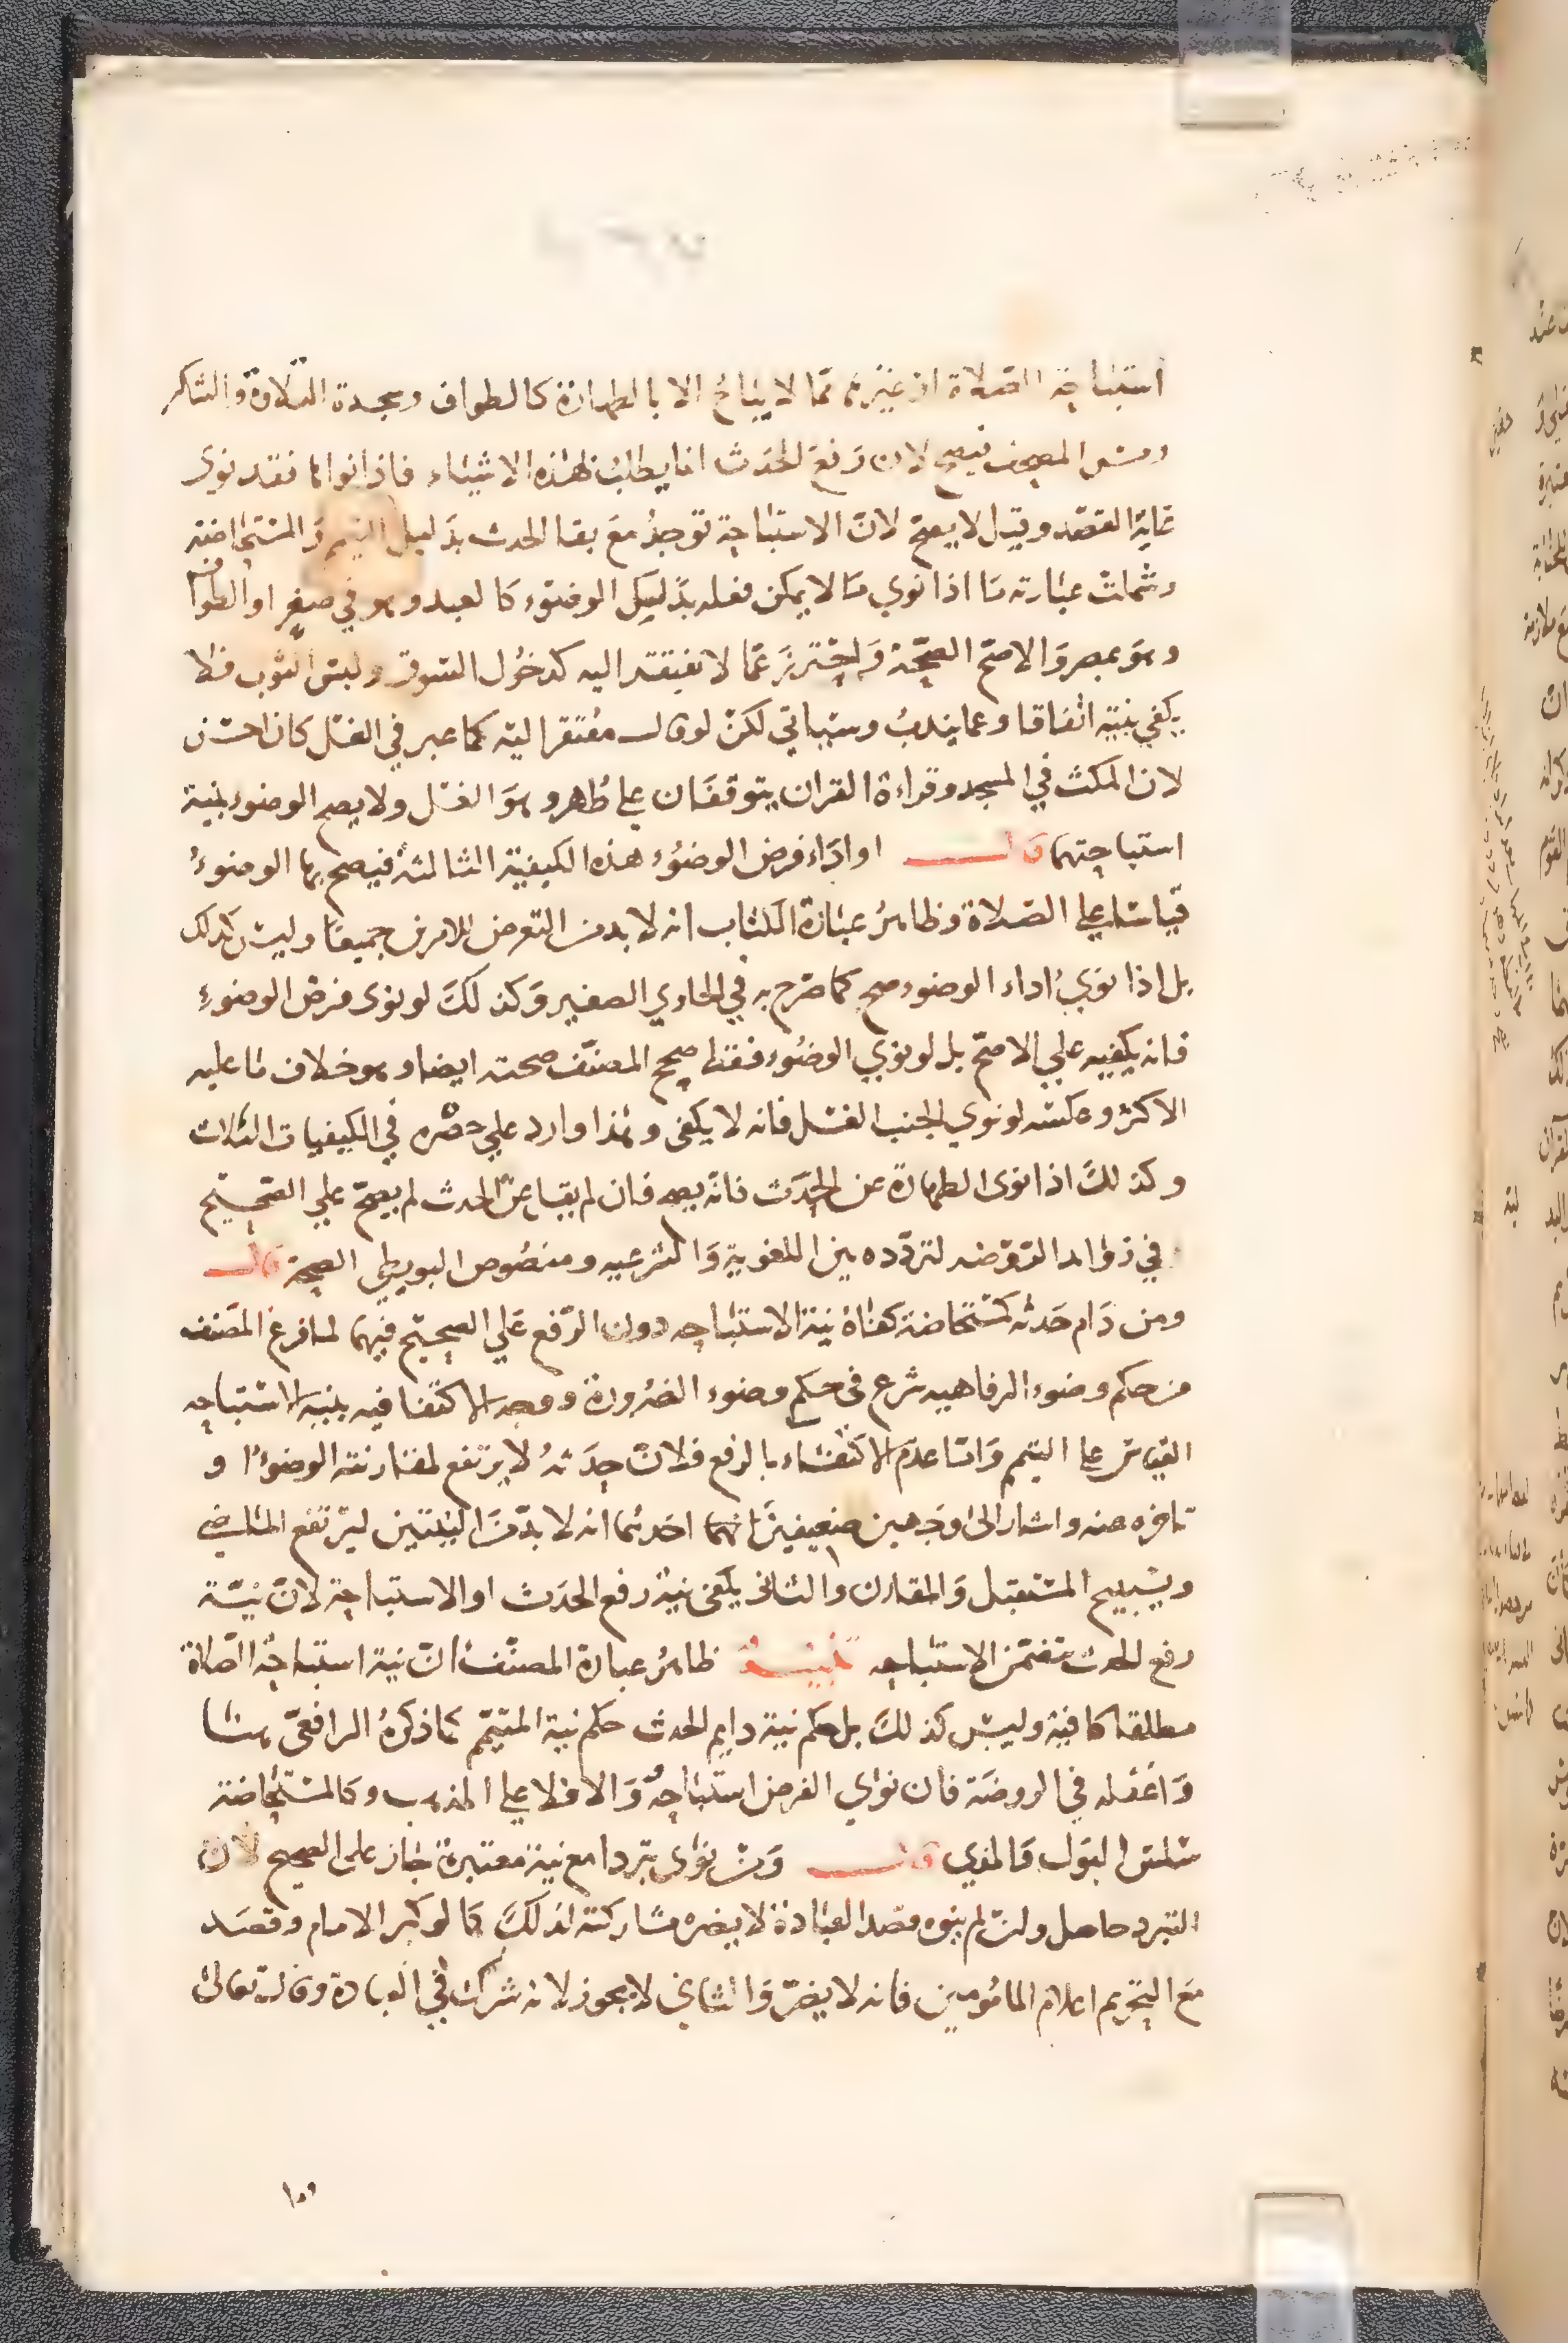 استباحة الصلاة او غيرها مما لا يباح الا بالطهارة كالطواف وسجدة التلاوة والشاكر
ومس المصحف فيصح لان رفع الحدث انما يطلب لهذه الاشياء فاذا نواها فقد نوى
غاية القصد وقيل لا يصح لان الاستباحة توجد مع بقا الحدث بدليل التيمم والمستحاضة
وشملت عبارته ما اذا نوي ما لا يمكن فعله بذلك الوضوء كالعيد وهو في صفر او الطواف
وهو بمصر والاصح الصحة واحترز عما لا يفتقر اليه كدخول السوق ولبس الثوب فلا
يكفي نيته اتفاقا وعما يندب وسياتي لكن لو قال مفتقرا اليه كما عبر في الغسل كان احسن
لان المكث في المسجد وقراءة القران يتوقفان على طهر وهو الغسل ولا يصح الوضوء بنية
استباحتهما قال او اداء فرض الوضوء هذه الكيفية الثالثة فيصح بها الوضوء
قياسا على الصلاة وظاهر عبارة الكتاب انه لا بد من التعرض للامرين جميعا وليس كذلك
بل اذا نوي اداء الوضوء صح كما صرح به في الحاوي الصغير وكذلك لو نوى فرض الوضوء
فانه يكفيه علي الاصح بل لو نوي الوضوء فقط صحح المصنف صحته ايضا وهو خلاف ما عليه
الاكثر وعكسه لو نوي الجنب الغسل فانه لا يكفى وهذا وارد علي حصره في الكيفيات الثلاث
وكذلك اذا نوى الطهارة عن الحدث فانه يصح فان لم يقل عن الحدث لم يصح علي الصحيح
في زوايد الروضه لتردده بين اللغوية والشرعيه ومنصوص البويطي الصحة قال
ومن دام حدثه كمستحاضة كفاه نية الاستباحه دون الرفع علي الصحيح فيهما لما فرغ المصنف
من حكم وضوء الرفاهيه شرع في حكم وضوء الضرورة ووجه الاكتفا فيه بنية الاستباحه
القياس على التيمم واما عدم الاكتفاء بالرفع فلان حدثه لا يرتفع لمقارنته الوضوء او
تاخره عنه واشار الى وجهين ضعيفين احدهما انه لا بد من النيتين ليرتفع الماضي
ويستبيح المستقبل والمقارن والثاني يكفى نية رفع الحدث او الاستباحة لان نية
رفع الحدث تتضمن الاستباحه تنبيه ظاهر عبارة المصنف ان نية استباحة الصلاة
مطلقا كافية وليس كذلك بل حكم نية دايم الحدث حكم نية المتيمم كما ذكره الرافعي هنا
واغفله في الروضة فان نوي الفرض استباحه والا فلا علي المذهب وكالمستحاضة
سلس البول والمذي قال ومن نوى تبردا مع نية معتبرة جاز على الصحيح لان
التبرد حاصل وان لم ينوه فقصد العبادة لا يضره مشاركته لذلك كما لو كبر الامام وقصد
مع التحريم اعلام المامومين فانه لا يضر والثاني لا يجوز لانه شرك في العبادة وقال تعالى